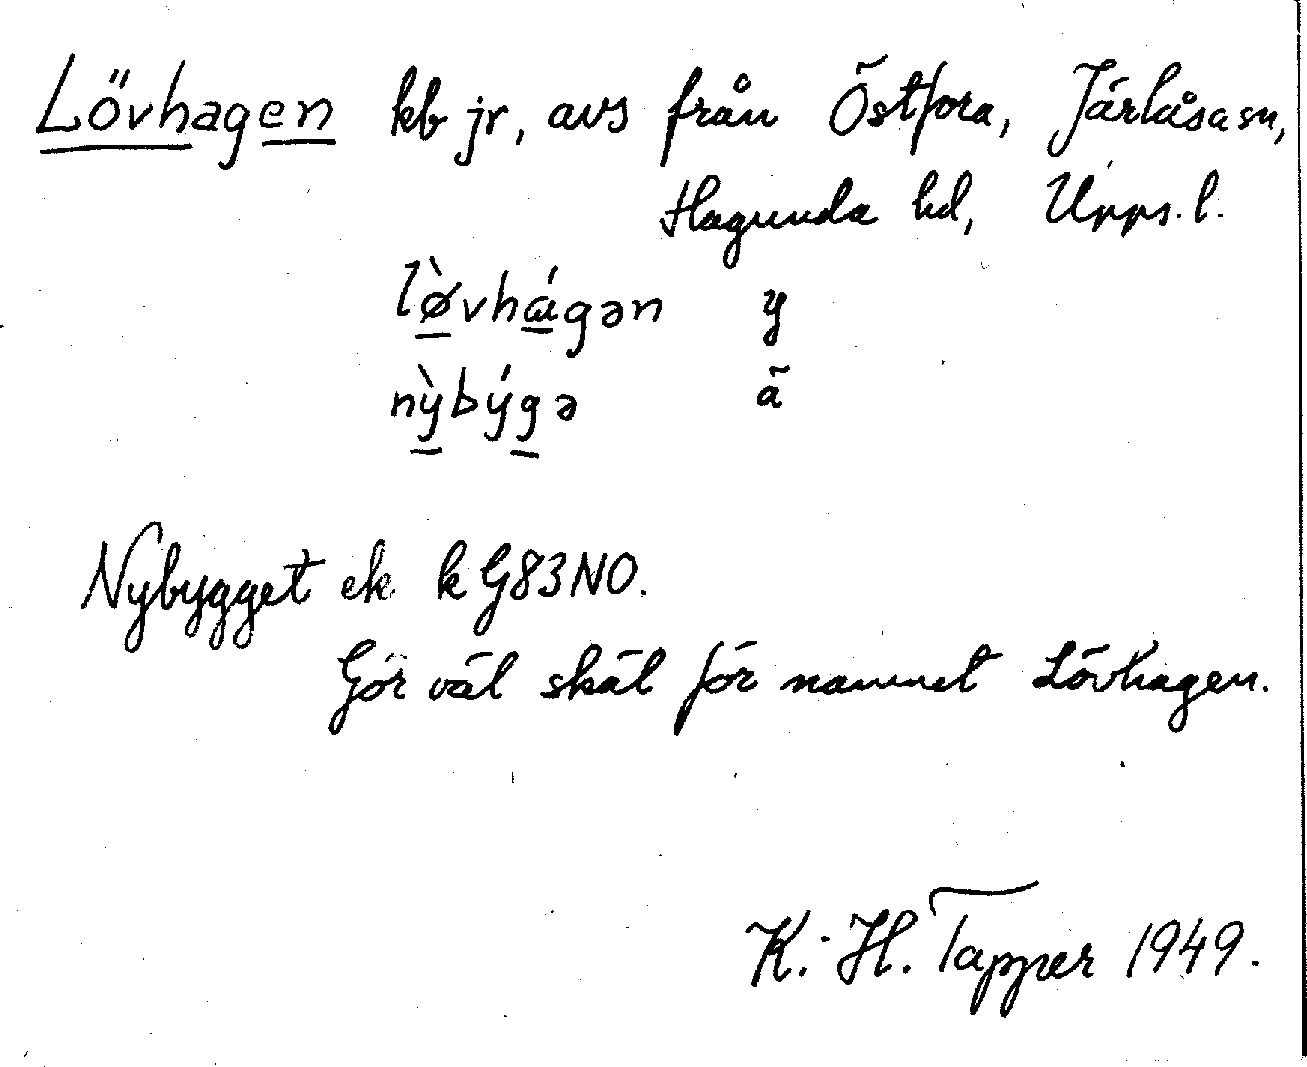 Lövhagen kb jr, avs från Östfora, Järlåsa sn,
Hagunda hd, Upps. l.
lø̀vhágən y
nỳbýgə ä
Nybygget ek k G83NO.
Gör väl skäl för namnet Lövhagen.
K. H. Tapper 1949.